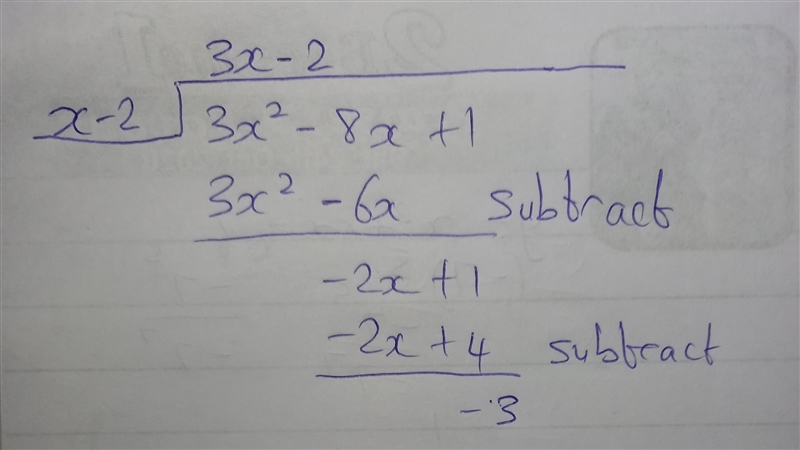 3x - 2
x - 2 3x² - 8x + 1
3x² - 6x subtract
-2x + 1
-2x + 4 subtract
-3